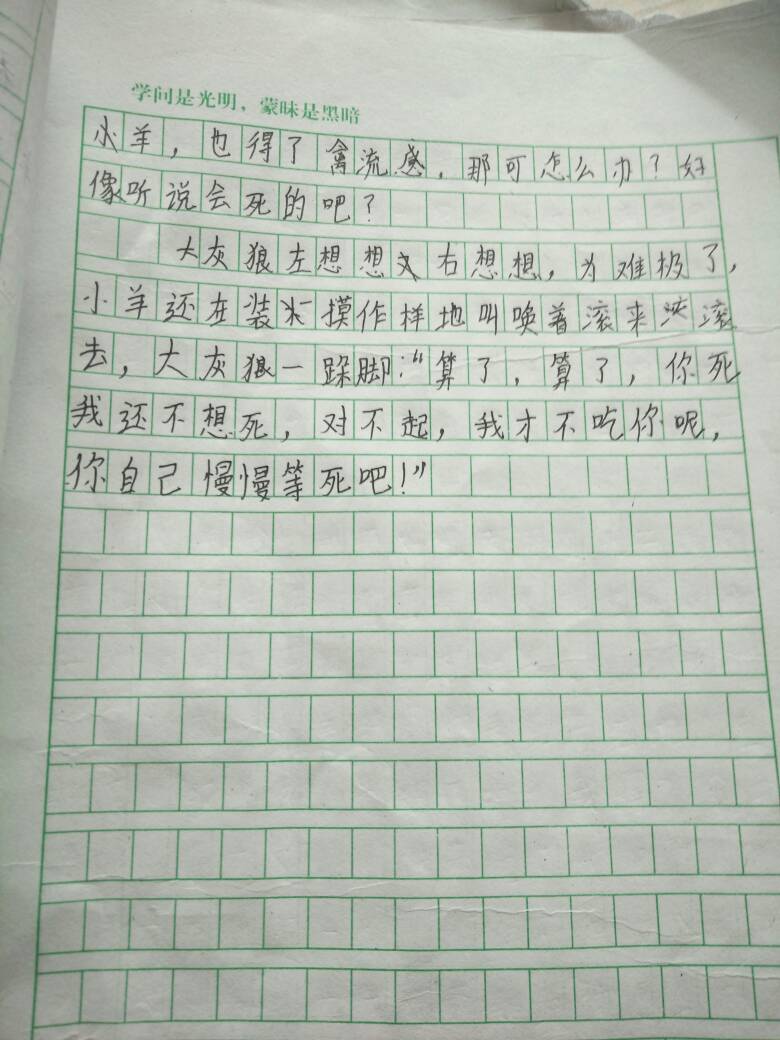 学问是光明，蒙昧是黑暗
小羊，也得了禽流感，那可怎么办？好
像听说会死的吧？
大灰狼左想想又右想想，为难极了，
小羊还在装摸作样地叫唤着滚来滚
去，大灰狼一跺脚：“算了，算了，你死
我还不想死，对不起，我才不吃你呢，
你自己慢慢等死吧！”